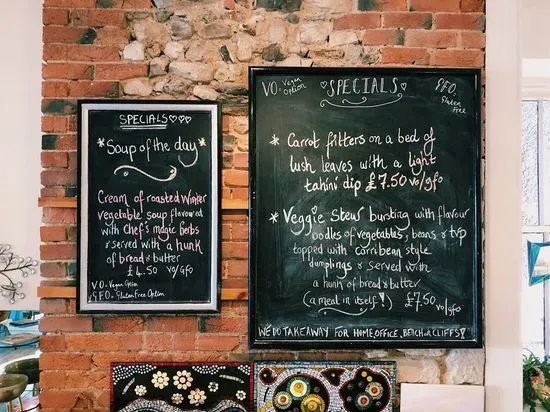 SPECIALS
* Soup of the day *
Cream of roasted winter
vegetable soup flavoured
with chef's magic herbs
& served with a hunk
of bread & butter
£4.50 VO/GFO
VO - Vegan Option
GFO - Gluten Free Option
VO - Vegan Option
SPECIALS
GFO - Gluten Free
* Carrot fritters on a bed of
lush leaves with a light
tahini dip £7.50 vo/gfo
* Veggie Stew bursting with flavour
oodles of vegetables, beans & tvp
topped with Carribean style
dumplings & served with
a hunk of bread & butter
(a meal in itself!) £7.50 vo/gfo
WE DO TAKEAWAY FOR HOME, OFFICE, BEACH OR CLIFFS!